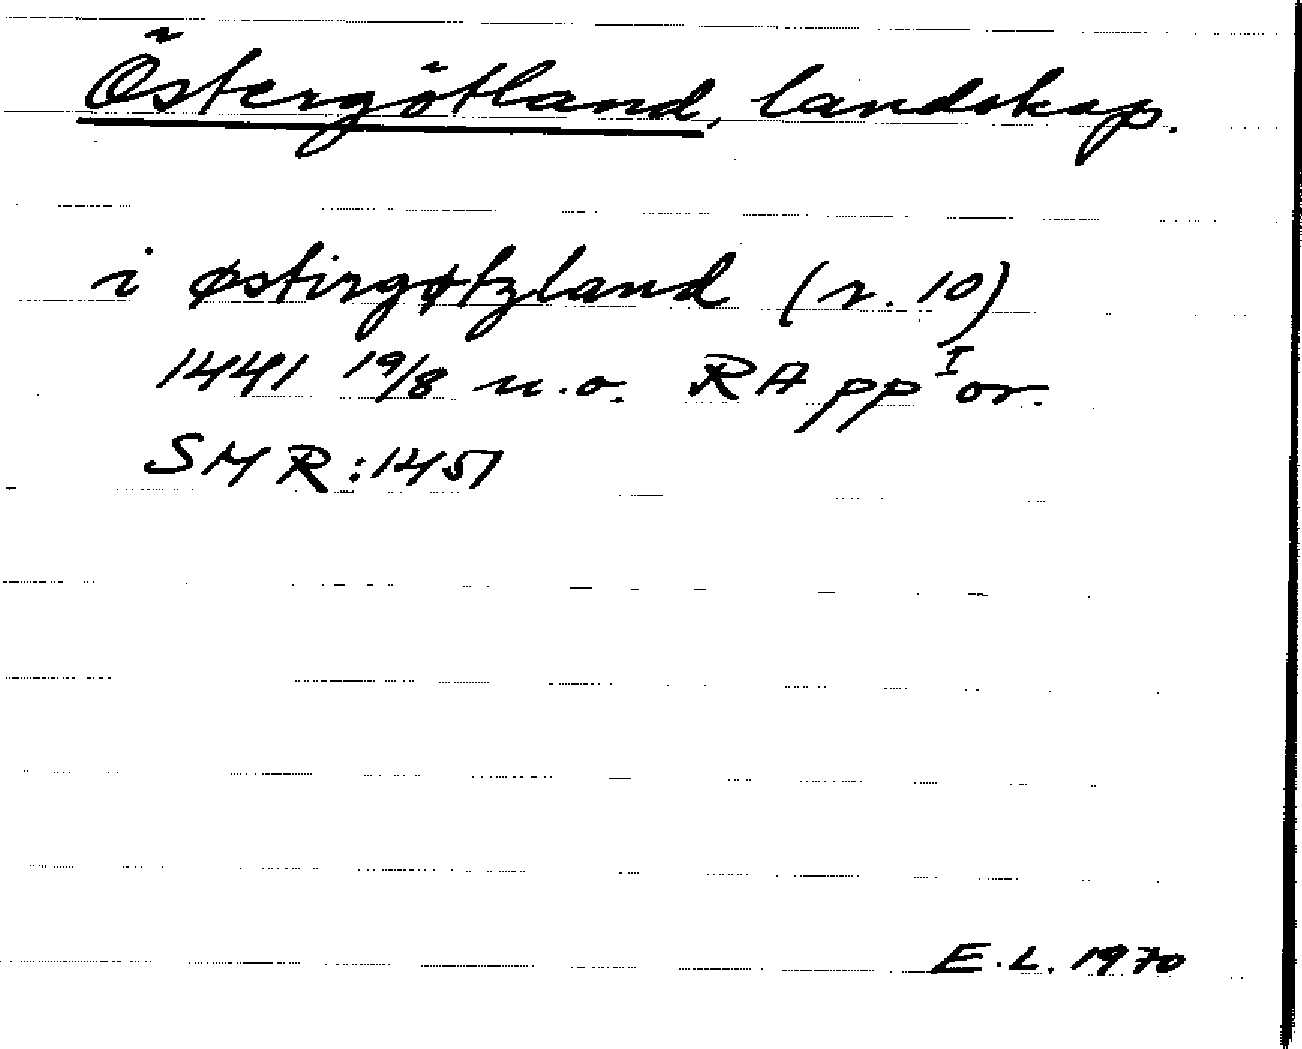 Östergötland, landskap.
i østirgøtzland (r. 10)
1441 19/8 u.o. RA pp I or.
SMR: 1451
E.L. 1970